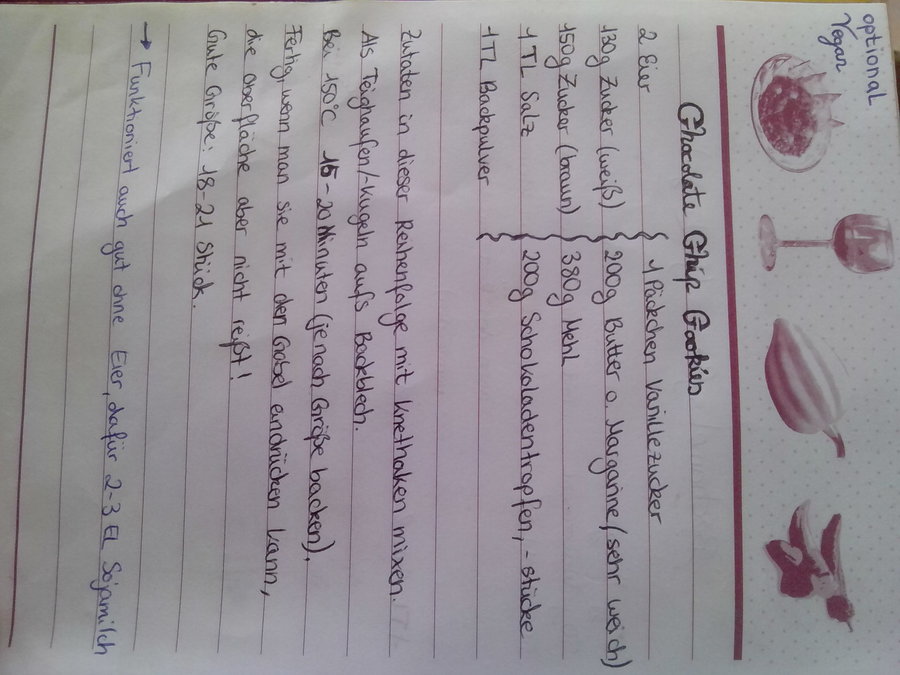 optional
Vegan
Chocolate Chip Cookies
2 Eier
130g Zucker (weiß)
150g Zucker (braun)
1 TL Salz
1 TL Backpulver
1 Päckchen Vanillezucker
200g Butter o. Margarine (sehr weich)
380g Mehl
200g Schokoladentropfen, -stücke
Zutaten in dieser Reihenfolge mit Knethaken mixen.
Als Teighaufen/-Kugeln aufs Backblech.
Bei 150°C 15-20 Minuten (je nach Größe backen).
Fertig, wenn man sie mit den Gabel eindrücken kann,
die Oberfläche aber nicht reißt!
Gute Größe: 18-21 Stück.
→ Funktioniert auch gut ohne Eier, dafür 2-3 EL Sojamilch